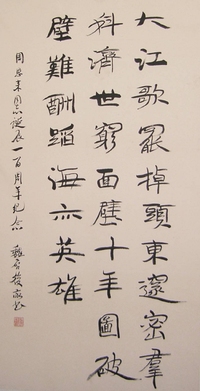 大江歌罷掉頭東邃密羣
科濟世窮面壁十年圖破
壁難酬蹈海亦英雄
周恩来同志诞辰一百周年纪念